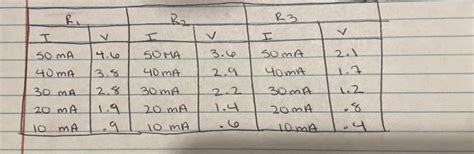 R1 R2 R3
I V I V I V
50 mA 4.6 50 MA 3.6 50 mA 2.1
40 mA 3.8 40 mA 2.9 40 mA 1.7
30 mA 2.8 30 mA 2.2 30 mA 1.2
20 mA 1.9 20 mA 1.4 20 mA .8
10 mA .9 10 mA .6 10 mA .4